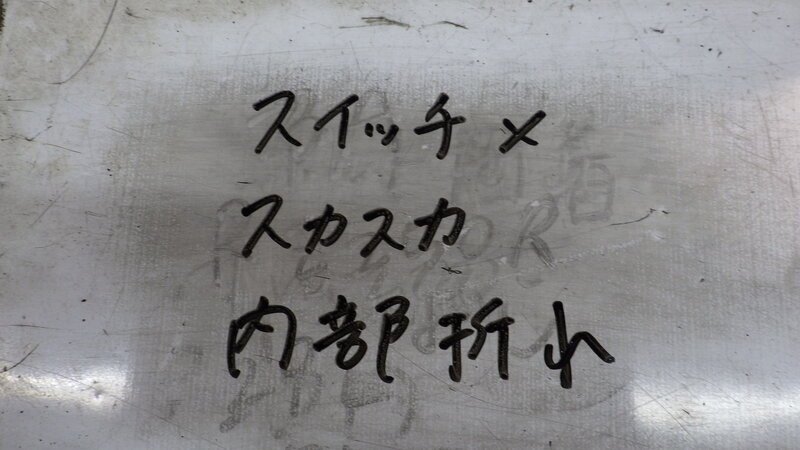 スイッチ×
スカスカ
内部折れ